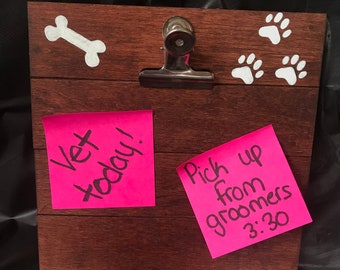 Vet
today!
Pick up
from
groomers
3:30